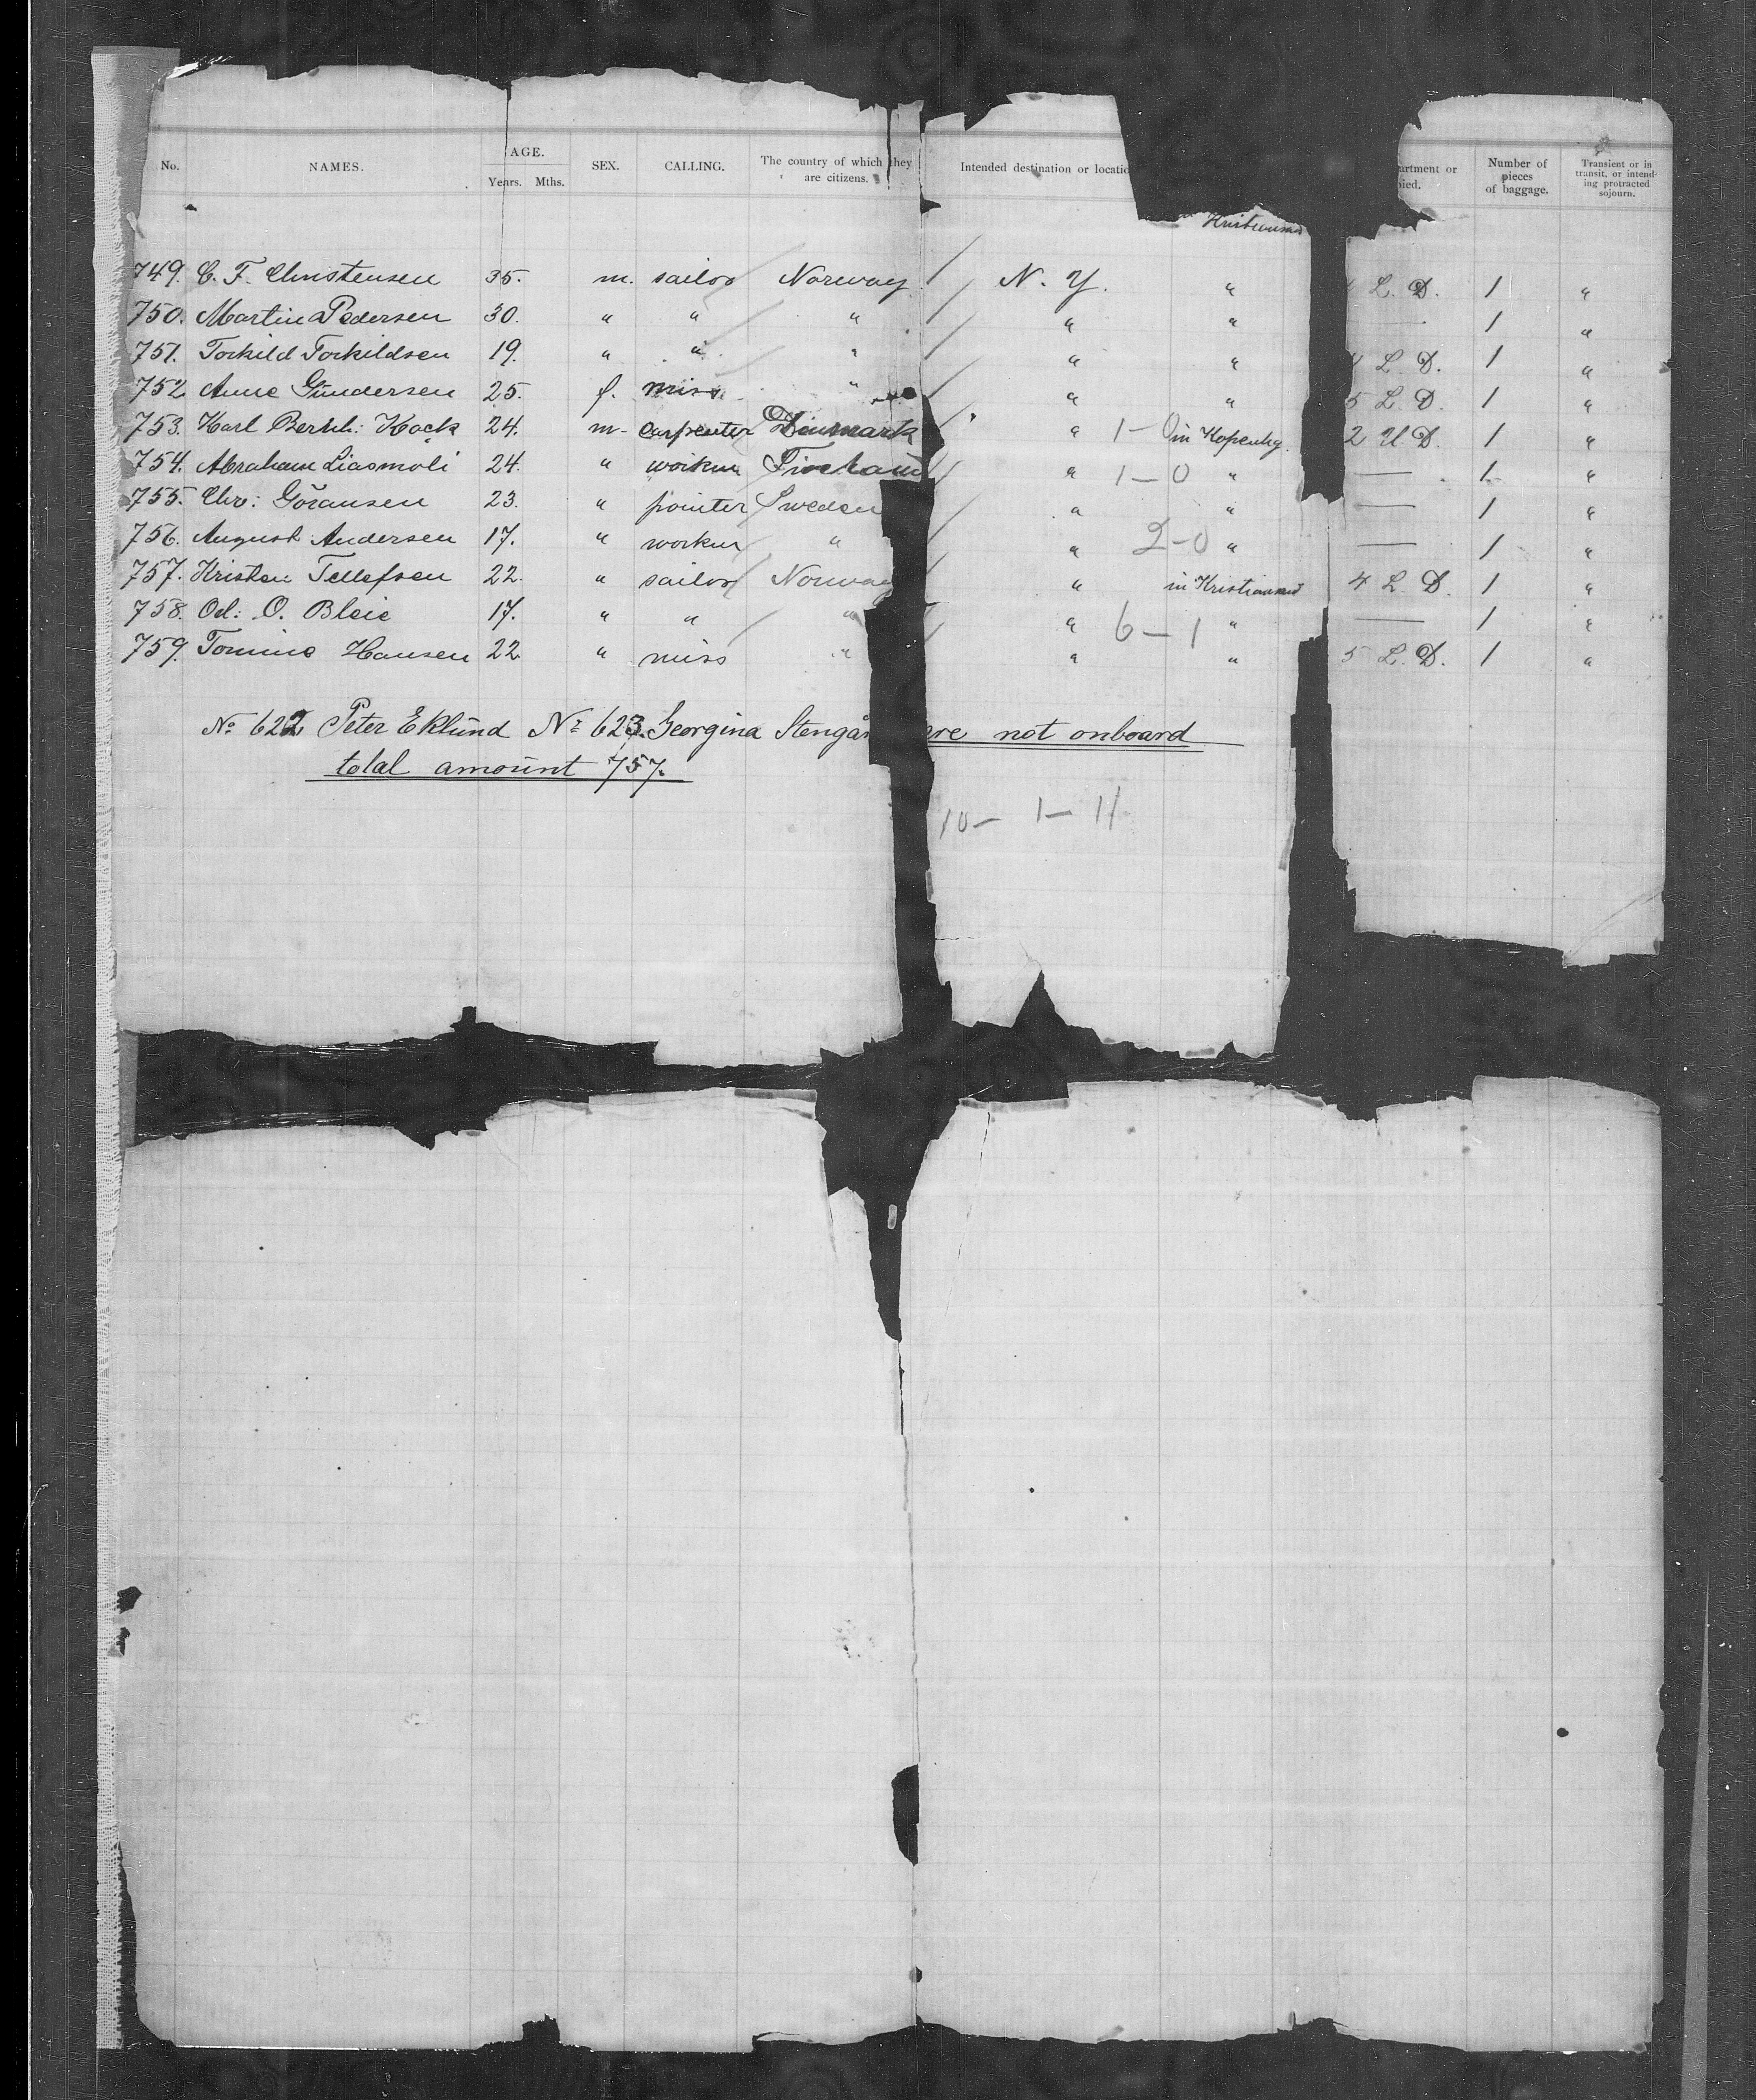 No. NAMES. AGE. Years. Mths. SEX. CALLING. The country of which they are citizens. Intended destination or locatio artment or pied. Number of pieces of baggage. Transient or in transit, or intending protracted sojourn.
Kristiansand
749. C. F. Christensen 35. m. sailor Norway N. Y. " L. D. 1 "
750. Martin Pedersen 30. " " " " " — 1 "
751. Torkild Torkildsen 19. " " " " " 4 L. D. 1 "
752 Anne Gundersen 25. f. miss " " " 5 L. D. 1 "
753. Karl Bernh: Kock 24. m. carpenter Denmark " 1-0 in Kopenhg. 2 U. D. 1 "
754. Abraham Liasmoli 24. " worker " 1-0 " — 1 "
755. Chr: Göransen 23. " painter Sweden " " — 1 "
756. August Andersen 17. " worker " " 2-0 " — 1 "
757. Kristen Tellefsen 22. " sailor Norway " in Kristiansand 4 L. D. 1 "
758. Od: O. Bleie 17. " " " " 6-1 " — 1 "
759. Tomine Hansen 22 " miss " " " 5 L. D. 1 "
No 622 Peter Eklund No 623. Georgina Stengår are not onboard
total amount 757.
10- 1- 11